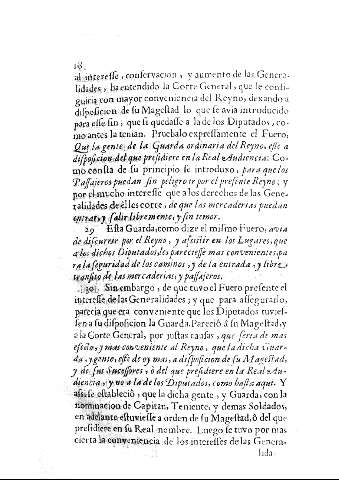 18
al interesse, conservacion, y aumento de las Genera-
lidades, ha entendido la Corte General, que le consi-
guiria con mayor conveniencia del Reyno, dexando a
disposicion de su Magestad lo que se avia introducido
para esse fin; que si quedasse a la de los Diputados, co-
mo antes la tenian. Pruebalo expressamente el Fuero,
Que la gente de la Guarda ordinaria del Reyno, estè a
disposicion del que presidiere en la Real Audiencia: Co-
mo consta de su principio se introduxo, para que los
Passajeros puedan sin peligro ir por el presente Reyno; y
por el mucho interesse que a los derechos de las Gene-
ralidades de èl les corre, de que las mercadurias puedan
entrar, y salir libremente, y sin temor.
29 Esta Guarda, como dize el mismo Fuero, avia
de discurrir por el Reyno, y assistir en los Lugares, que
a los dichos Diputados les pareciesse mas convenientes, pa
ra la seguridad de los caminos, y de la entrada, y libre
transito de las mercaderias; y passajeros.
30 Sin embargo, de que tuvo el Fuero presente el
interesse de las Generalidades; y que para assegurarlo,
parecia que era conveniente que los Diputados tuvies-
sen a su disposicion la Guarda. Pareciò à su Magestad, y
a la Corte General, por justas causas, que seria de mas
efecto, y mas conveniente al Reyno, que la dicha Guar-
da, y gente, estè de oy mas, a disposicion de su Magestad,
y de sus Sucessores, ò del que presidiere en la Real Au-
diencia; y no a la de los Diputados, como hasta aqui. Y
assi se estableciò, que la dicha gente, y Guarda, con la
nominacion de Capitan, Teniente, y demas Soldados,
en adelante estuviesse a orden de su Magestad, ò del que
presidiere en su Real nombre. Luego se tuvo por mas
cierta la conveniencia de los interesses de las Genera-
lida